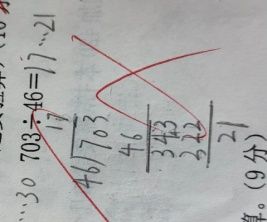 703÷46=17…21
17
46)703
46
343
322
21
…30
算。(9分)